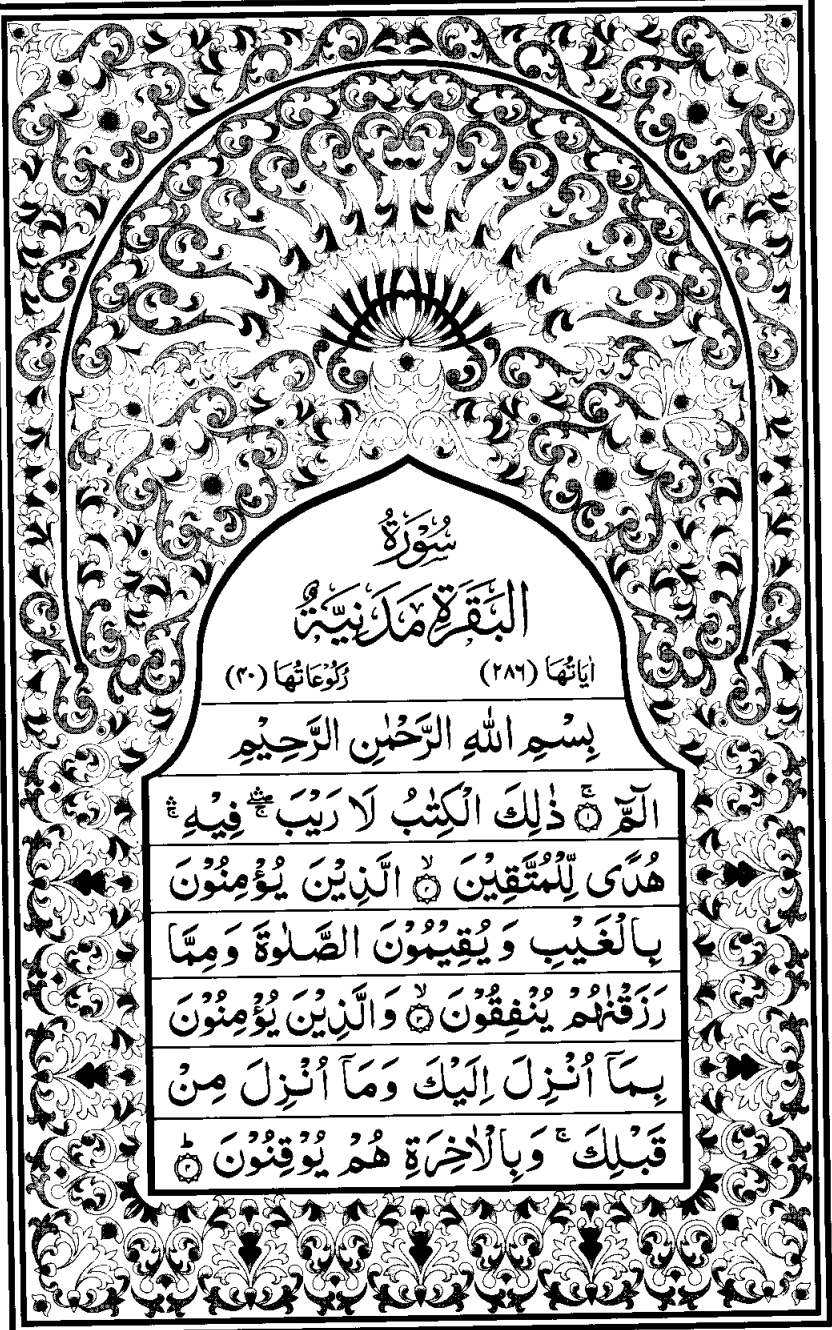 سُوْرَةُ
الْبَقَرَةِ مَدَنِيَّةٌ
اٰيَاتُهَا (٢٨٦) رُكُوْعَاتُهَا (۴۰)
بِسْمِ اللّٰهِ الرَّحْمٰنِ الرَّحِيْمِ
الٓمّٓ ۚ‏﴿۱﴾ ذٰلِكَ الْكِتٰبُ لَا رَيْبَ ۛۖۚ فِيْهِ ۛۚ
هُدًى لِّلْمُتَّقِيْنَ ۙ﴿۲﴾ الَّذِيْنَ يُؤْمِنُوْنَ
بِالْغَيْبِ وَيُقِيْمُوْنَ الصَّلٰوةَ وَمِمَّا
رَزَقْنٰهُمْ يُنْفِقُوْنَ ۙ﴿۳﴾ وَالَّذِيْنَ يُؤْمِنُوْنَ
بِمَآ اُنْزِلَ اِلَيْكَ وَمَآ اُنْزِلَ مِنْ
قَبْلِكَ ۚ وَبِالْاٰخِرَةِ هُمْ يُوْقِنُوْنَ ؕ﴿۴﴾